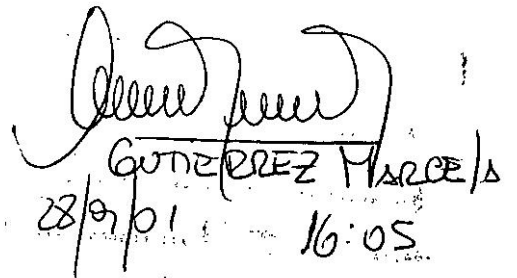 GUTIERREZ MARCELA
28/9/01 16:05